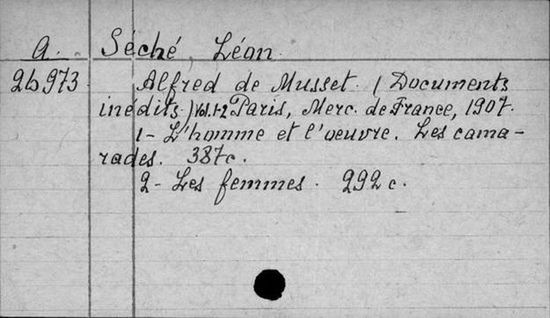 A. Séché, Léon
26973 Alfred de Musset. (Documents
inédits.) Vol. 1-2 Paris, Merc. de France, 1907.
1- L'homme et l'oeuvre. Les cama-
rades. 387c.
2- Les femmes. 292 c.